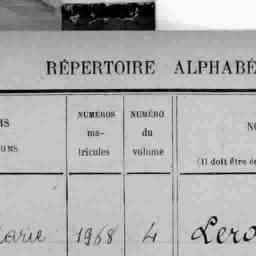 RÉPERTOIRE ALPHABÉ
NUMÉROS ma- tricules
NUMÉRO du volume
(Il doit être
1968 4